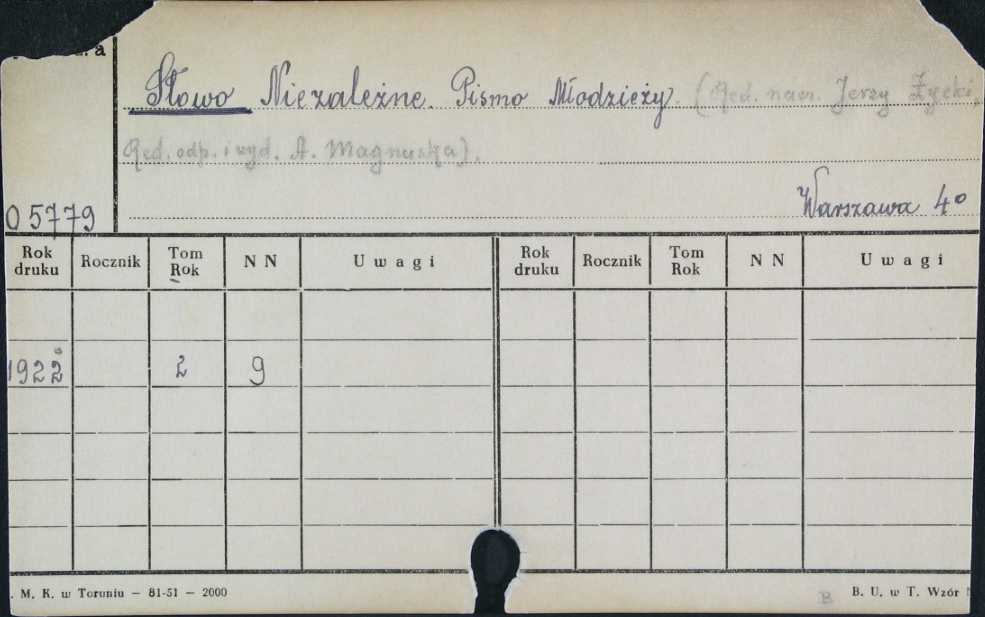 a
Słowo Niezależne. Pismo Młodzieży. (Red. nacz. Jerzy Życki,
Red. odp. i wyd. A. Magnuska).
05779
Warszawa 4°
Rok druku Rocznik Tom Rok N N Uwagi Rok druku Rocznik Tom Rok N N Uwagi
1922 2 9
. M. K. w Toruniu — 81-51 — 2000
B
B. U. w T. Wzór